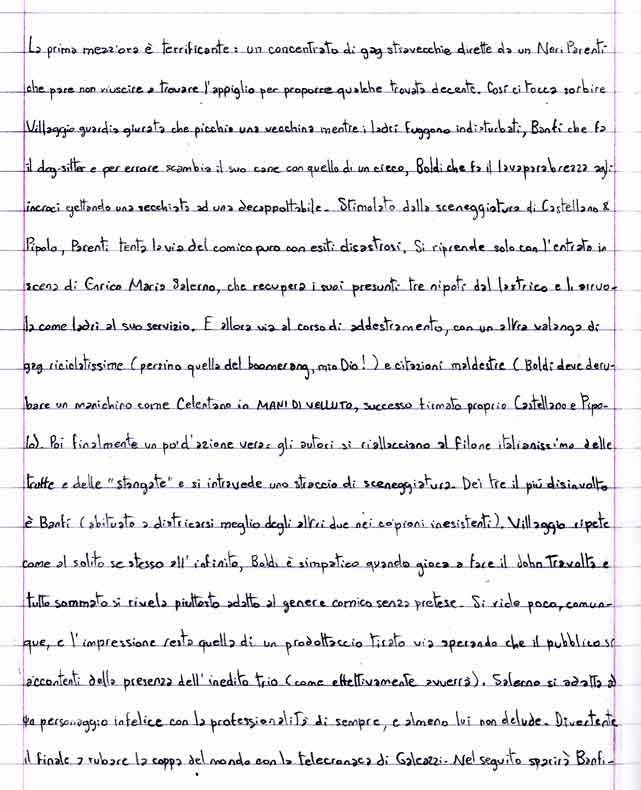 La prima mezz'ora è terrificante: un concentrato di gag stravecchie dirette da un Neri Parenti
che pare non riuscire a trovare l'appiglio per proporre qualche trovata decente. Così ci tocca sorbire
Villaggio guardia giurata che picchia una vecchina mentre i ladri fuggono indisturbati, Banfi che fa
il dog-sitter e per errore scambia il suo cane con quello di un cieco, Boldi che fa il lavaparabrezza agli
incroci gettando una secchiata ad una decappottabile. Stimolato dalla sceneggiatura di Castellano &
Pipolo, Parenti tenta la via del comico puro con esiti disastrosi. Si riprende solo con l'entrata in
scena di Enrico Maria Salerno, che recupera i suoi presunti tre nipoti dal lastrico e li arruo-
la come ladri al suo servizio. E allora via al corso di addestramento, con un altra valanga di
gag riciclatissime (persino quella del boomerang, mio Dio!) e citazioni maldestre (Boldi deve deru-
bare un manichino come Celentano in MANI DI VELLUTO, successo firmato proprio Castellano e Pipo-
lo). Poi finalmente un po' d'azione vera: gli autori si riallacciano al filone italianissimo delle
truffe e delle "stangate" e si intravede uno straccio di sceneggiatura. Dei tre il più disinvolto
è Banfi (abituato a districarsi meglio degli altri due nei copioni inesistenti). Villaggio ripete
come al solito se stesso all'infinito, Boldi è simpatico quando gioca a fare il John Travolta e
tutto sommato si rivela piuttosto adatto al genere comico senza pretese. Si ride poco, comun-
que, e l'impressione resta quella di un prodottaccio tirato via sperando che il pubblico si
accontenti della presenza dell'inedito trio (come effettivamente avverrà). Salerno si adatta al
personaggio infelice con la professionalità di sempre, e almeno lui non delude. Divertente
il finale a rubare la coppa del mondo con la telecronaca di Galeazzi. Nel seguito sparirà Banfi.